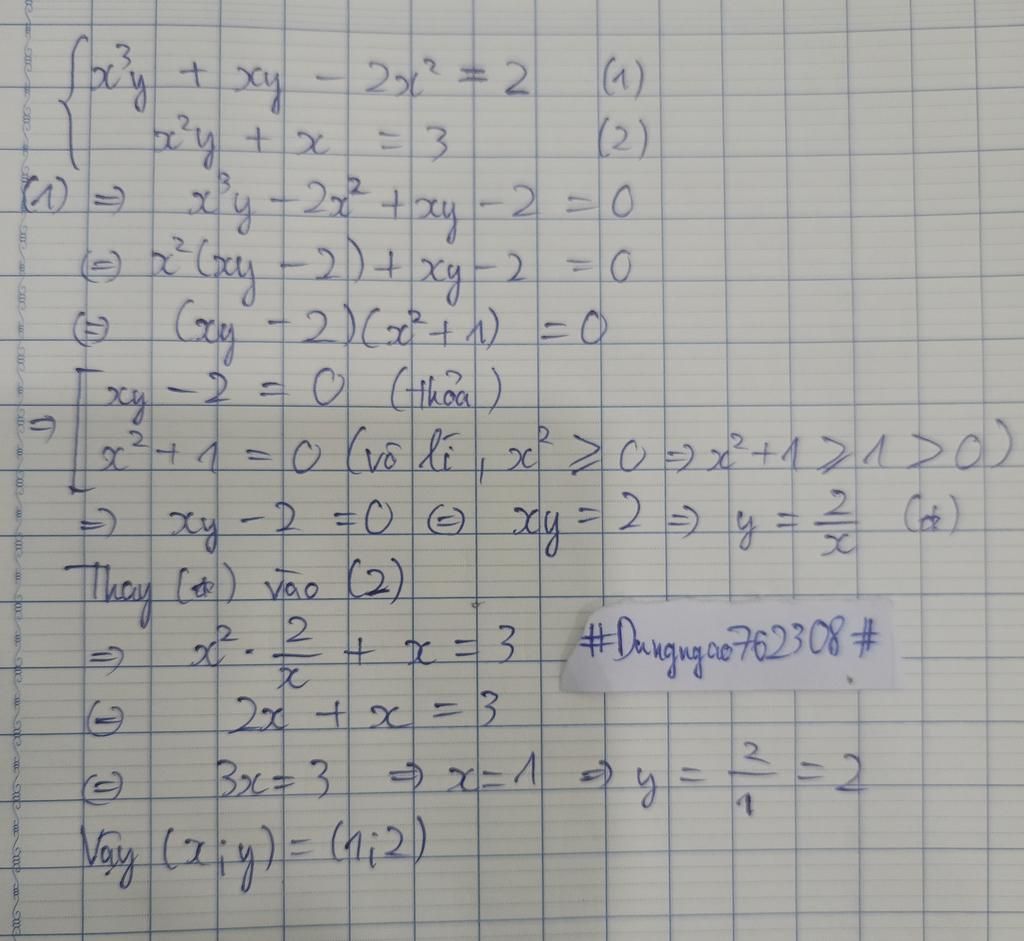 x³y + xy - 2x² = 2 (1)
x²y + x = 3 (2)
(1) ⇒ x³y - 2x² + xy - 2 = 0
⇔ x²(xy - 2) + xy - 2 = 0
⇔ (xy - 2)(x² + 1) = 0
⇒ [ xy - 2 = 0 (thỏa)
x² + 1 = 0 (vô lí, x² ⩾ 0 ⇒ x² + 1 ⩾ 1 > 0)
⇒ xy - 2 = 0 ⇔ xy = 2 ⇒ y = 2/x (*)
Thay (*) vào (2)
⇒ x² · 2/x + x = 3
#Dungngao762308#
⇔ 2x + x = 3
⇔ 3x = 3 ⇒ x = 1 ⇒ y = 2/1 = 2
Vậy (x;y) = (1;2)